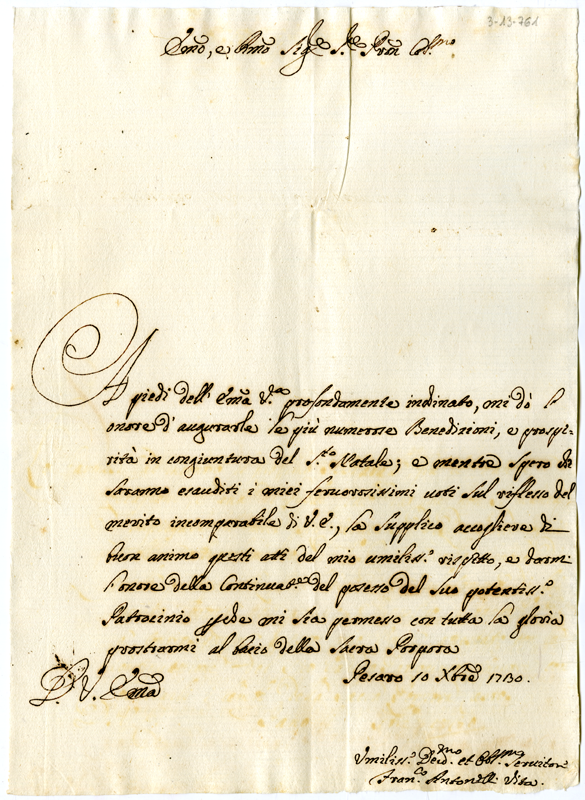 3-13-761
Emo, e Rmo Sigre Sre Prõn Colmo
A piedi dell' Emã V.ra profondamente inclinato, mi dò l'
onore d'augurarle le più numerose Benedizioni, e prospe-
rità in congiuntura del S.to Natale; e mentre spero che
saranno esauditi i miei fervorosissimi voti sul riflesso del
merito incomparabile di V.E., la supplico accogliere di
buon animo questi atti del mio umiliss.o rispetto, e darmi
l'onore della Continuaz.ne del posesso del Suo potentiss.o
Patrocinio mi sia permesso con tutta la gloria
prostrarmi al bacio della Sacra Porpora
D. V. Emã
Pesaro 10 Xbre 1730.
Umiliss.o Devd.mo et Obl.mo Servitore
Fran.co Antonelli Vita.